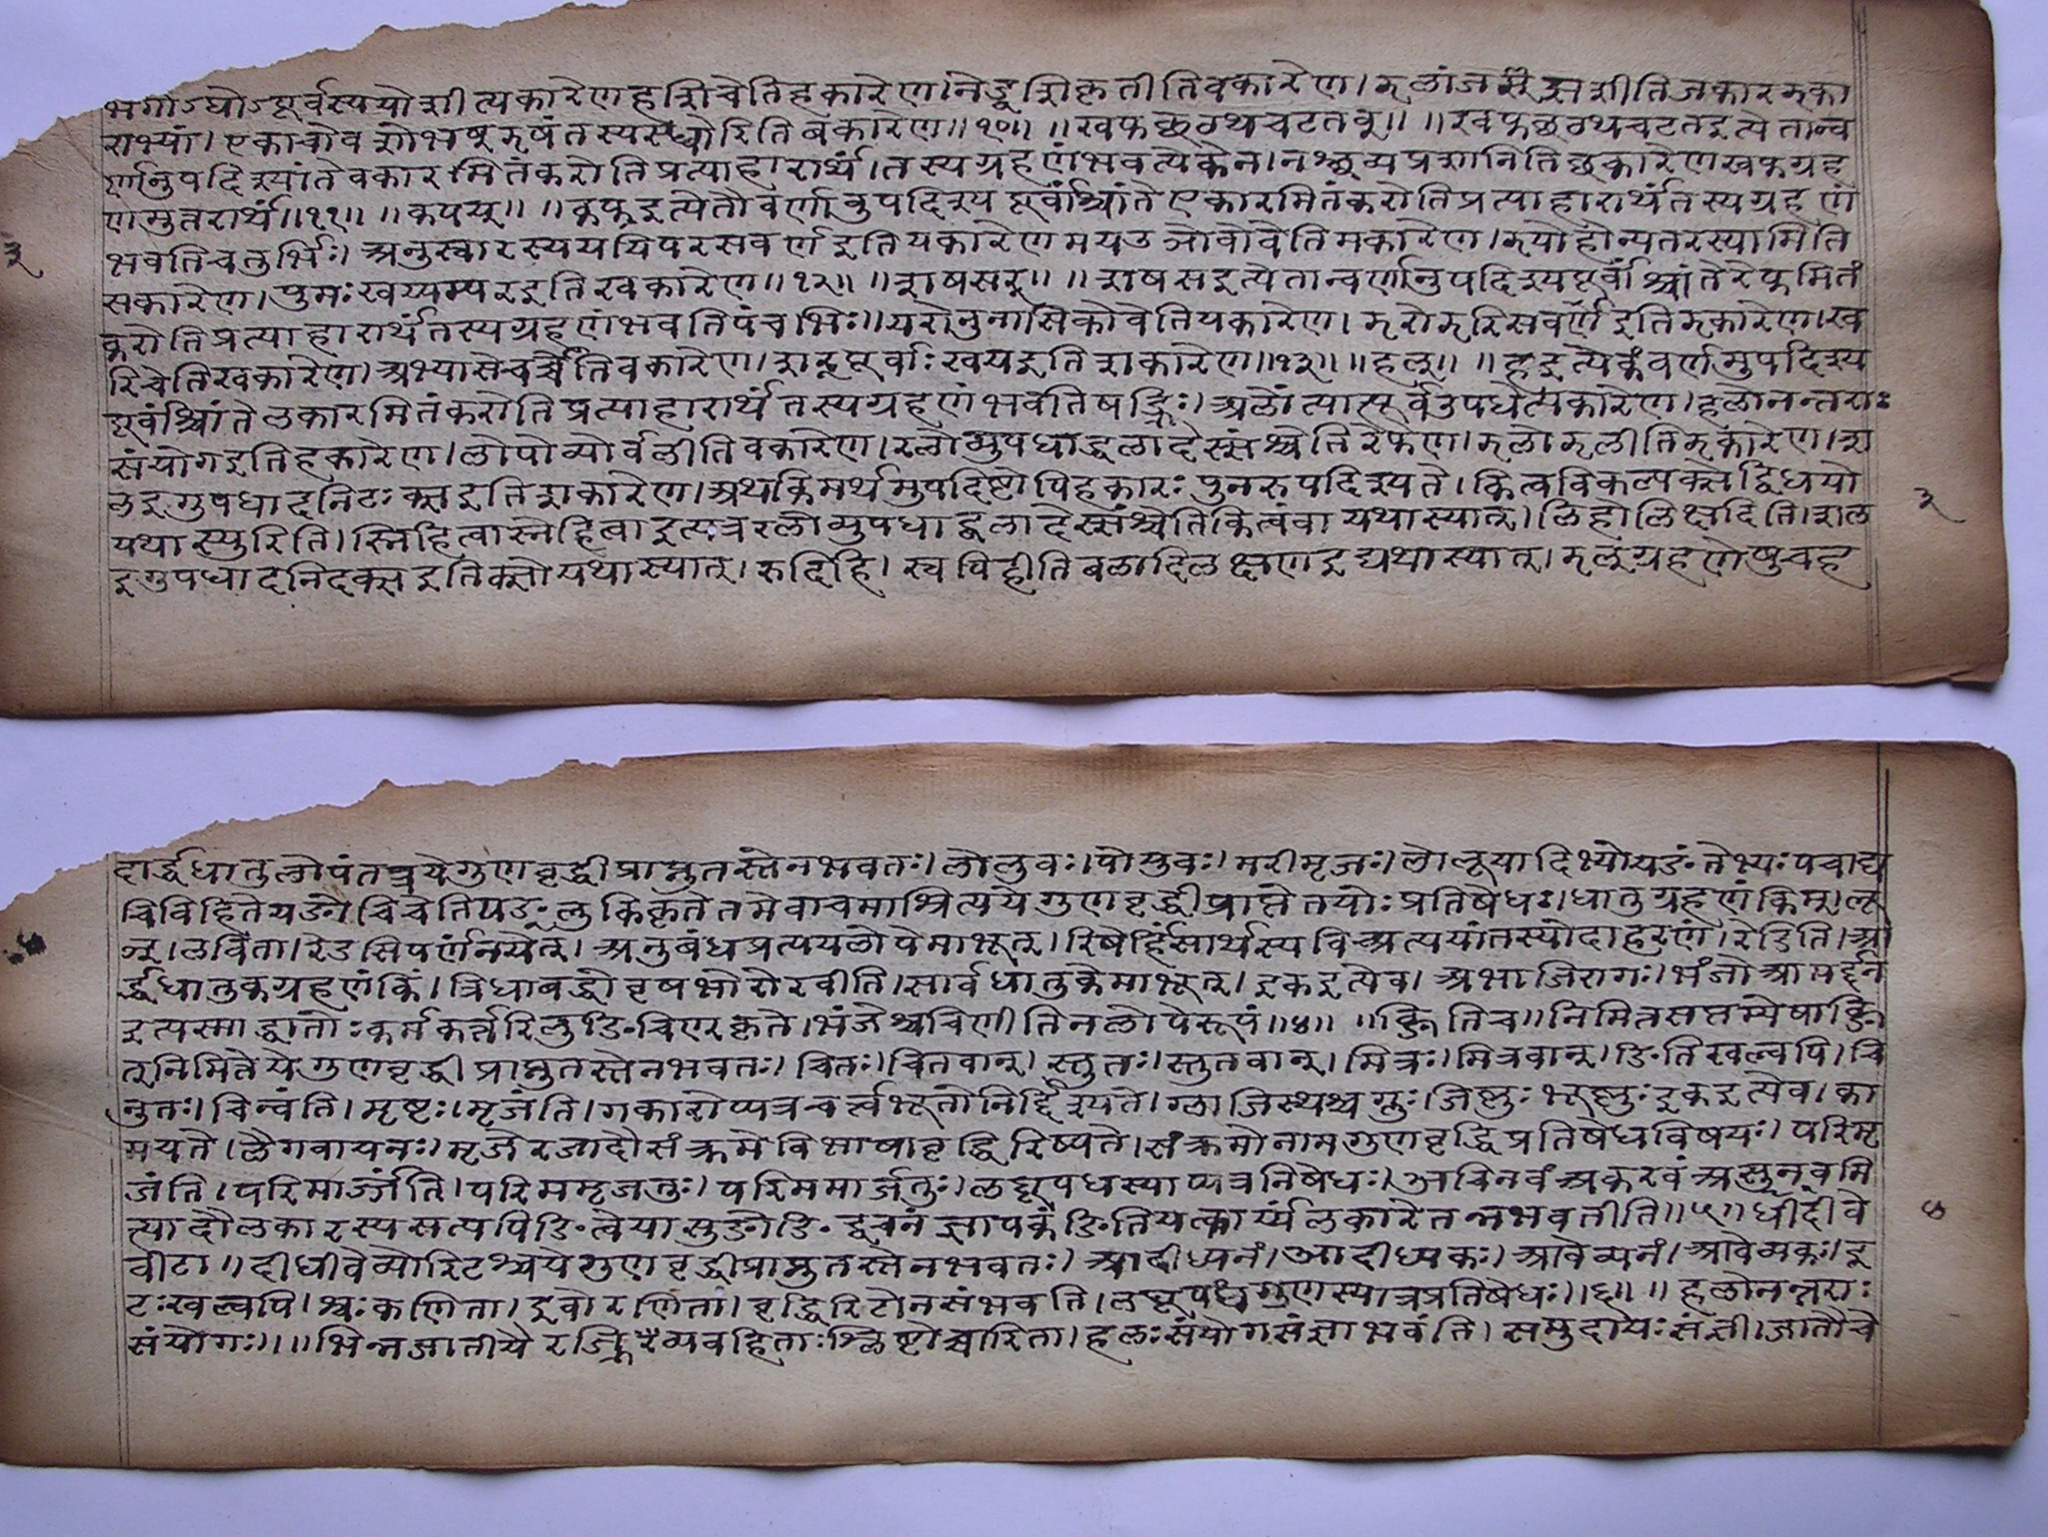 भगोऽघोऽपूर्वस्य योशीत्यकारेण हशि चेति हकारेण। नेड्वशि कृतीति वकारेण। झलां जश् झशीति जकारझका
राभ्यां। एकाचो बशो भष् झषंतस्य स्ध्वोरिति बकारेण॥१०॥ ॥खफछठथचटतव्॥ ॥खफछठथचटतइत्येतान्व
र्णानुपदिश्यांते वकारमितं करोति प्रत्याहारार्थं। तस्य ग्रहणं भवत्येकेन। नश्छव्यप्रशानिति छकारेण खफग्रह
णमुत्तरार्थं॥११॥ ॥कपय्॥ ॥कफइत्येतौ वर्णावुपदिश्य पूर्वांश्चांते एकारमितं करोति प्रत्याहारार्थं तस्य ग्रहणं
भवति चतुर्भिः। अनुस्वारस्य ययि परसवर्ण इति यकारेण मय उञो वो वेति मकारेण। झयो होन्यतरस्यामिति
सकारेण। पुमः खय्यम्पर इति खकारेण॥१२॥ ॥शषसर्॥ ॥शषसइत्येतान्वर्णानुपदिश्य पूर्वांश्चांते रेफमितं
करोति प्रत्याहारार्थं तस्य ग्रहणं भवति पंचभिः॥ यरोनुनासिको वेति यकारेण। झरो झरि सवर्णे इति झकारेण। ख
रि चेति खकारेण। अभ्यासे चर्च्चेति वकारेण। शर्पूर्वाः खय इति शकारेण॥१३॥ ॥हल्॥ ॥हइत्येकं वर्णमुपदिश्य
पूर्वांश्चांते लकारमितं करोति प्रत्याहारार्थं तस्य ग्रहणं भवति षड्भिः। अलोंत्यात्पूर्व उपधेत्यकारेण। हलोनन्तराः
संयोग इति हकारेण। लोपो व्योर्वलीति वकारेण। रलो व्युपधाद्धलादेस्संश्चेति रेफेण। झलो झलीति झकारेण। श
ल इगुपधादनिटः क्स इति शकारेण। अथ किमर्थमुपदिष्टोपि हकारः पुनरुपदिश्यते। कित्वविकल्पक्सेड्विधयो
यथा स्युरिति। स्निहित्वा स्नेहित्वा इत्यत्र रलो व्युपधाद्धलादेस्संश्चेति कित्वं वा यथा स्यात्। लिहोलिक्षदिति। शल
इगुपधादनिदक्स इति क्सो यथा स्यात्। रुदिहि। स्वपिहीति वलादिलक्षण इड्यथा स्यात्। झल्ग्रहणेषु च ह
दार्द्धधातुलोपं तत्र ये गुणवृद्धी प्राप्नुतस्ते न भवतः। लोलुवः। पोपुवः। मरीमृजः। लोलूयादिभ्यो यङंतेभ्यः पचाद्य
चि विहिते यङोचि चेति यङ्लुकि कृते तमेवाचमाश्रित्य ये गुणवृद्धी प्राप्ते तयोः प्रतिषेधः। धातुग्रहणं किम्। लू
ञ्। लविता। रेडसि पर्णं नयेत्। अनुबंधप्रत्ययलोपे मा भूत्। रिषेर्हिंसार्थस्य विच्प्रत्ययांतस्योदाहरणं। रेडिति। आ
र्द्धधातुकग्रहणं किं। त्रिधा बद्धो वृषभो रोरवीति। सार्वधातुके मा भूत्। इक इत्येव। अभाजि रागः। भंजो आमर्द्दन
इत्यस्माद्धातोः कर्मकर्त्तरि लुङि चिण कृते। भंजेश्च चिणीति नलोपे रूपं॥४॥ ॥क्ङिति च॥ निमित्तसप्तम्येषा क्ङि
त्निमित्ते ये गुणवृद्धी प्राप्नुतस्ते न भवतः। चितः। चितवान्। स्तुतः। स्तुतवान्। मित्रः। मित्रवान्। ङिति खल्वपि। चि
नुतः। चिन्वंति। मृष्टः। मृजंति। गकारोप्यत्र चर्त्वभूतो निर्द्दिश्यते। ग्लाजिस्थश्च ग्स्नुः। जिष्णुः भूष्णुः इक इत्येव। का
मयते। लैगवायनः। मृजेरजादौ संक्रमे विभाषा वृद्धिरिष्यते। संक्रमो नाम गुणवृद्धिप्रतिषेधविषयः। परिमृ
जंति। परिमार्ज्जंति। परिममृजतुः। परिममार्जतुः। लघूपधस्याप्यत्र निषेधः। अचिनवं अकरवं असुनवमि
त्यादौ लकारस्य सत्यपि ङित्वे यासुङो ङिद्वचनं ज्ञापकं ङिति यत्कार्य्यं लकारे तन्न भवतीति॥५॥ धीदीवे
वीटा॥ दीधीवेव्योरिटश्च ये गुणवृद्धी प्राप्नुतस्ते न भवतः। आदीध्यनं। आदीध्यकः। आवेव्यनं। आवेव्यकः। इ
टः खल्वपि। श्वः कणिता। इवो रणिता। वृद्धिरिटो न संभवति। लघूपधगुणस्यात्र प्रतिषेधः॥६॥ ॥ हलोनन्तराः
संयोगः॥ ॥भिन्नजातीयैरज्भिरव्यवहिताः श्लिष्टोच्चारिता। हलः संयोगसंज्ञा भवंति। समुदायः संज्ञी। जातौ चे
३
३
४